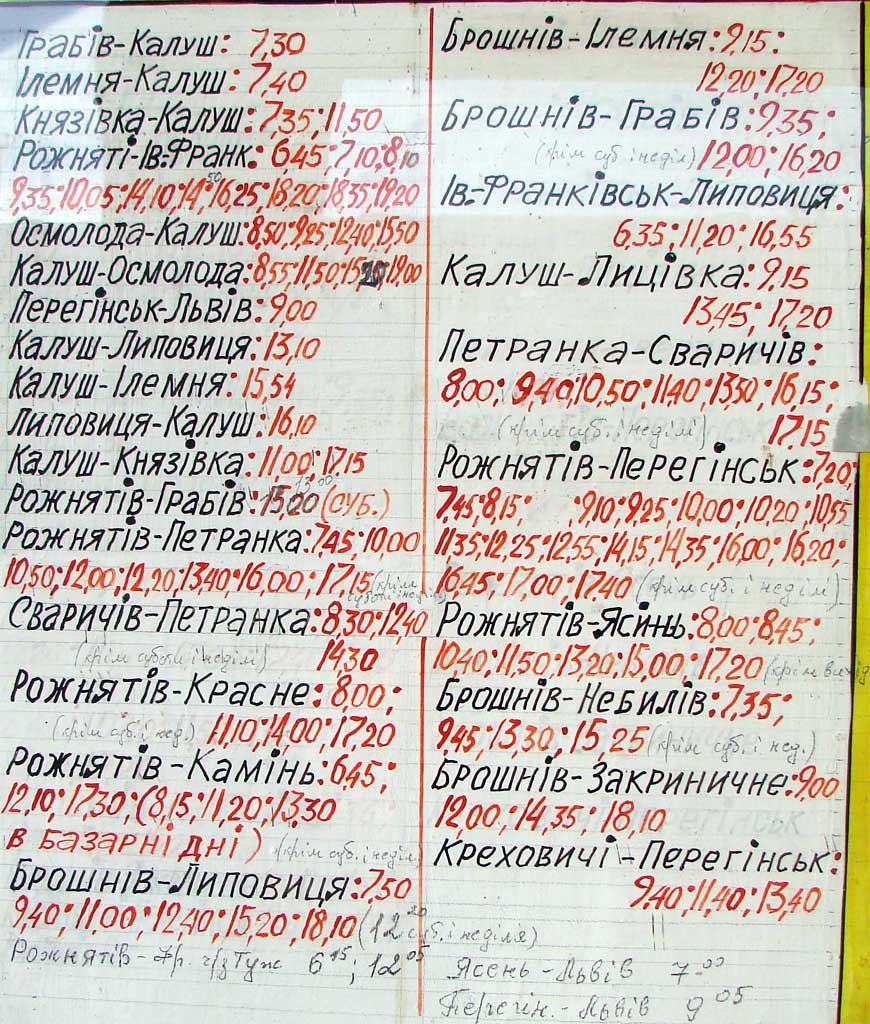 Грабів-Калуш: 7,30
Ілемня-Калуш: 7,40
Князівка-Калуш: 7,35; 11,50
Рожняті-Ів.Франк: 6,45; 7,10; 8,10
9,35; 10,05; 14,10; 14,50; 16,25; 18,20; 18,35; 19,20
Осмолода-Калуш: 8,50; 9,25; 12,40; 15,50
Калуш-Осмолода: 8,55; 11,50; 15,20; 19,00
Перегінськ-Львів: 9,00
Калуш-Липовиця: 13,10
Калуш-Ілемня: 15,54
Липовиця-Калуш: 16,10
Калуш-Князівка: 11,00; 17,15
Рожнятів-Грабів: (суб.)
Рожнятів-Петранка: 7,45; 10,00
10,50; 12,00; 12,20; 13,40; 16,00; 17,15 (крім
суботи і неділі)
Сваричів-Петранка: 8,30; 12,40
(крім суботи і неділі) 14,30
Рожнятів-Красне: 8,00;
(крім суб. і нед.) 11,10; 14,00; 17,20
Рожнятів-Камінь: 6,45;
12,10; 17,30; (8,15; 11,20; 13,30
в базарні дні) (крім суб. і неділі)
Брошнів-Липовиця: 7,50
9,40; 11,00; 12,40; 15,20; 18,10 (12 20 суб. і неділя)
Рожнятів - ч/з 6 45; 12 05
Брошнів-Ілемня: 9,15;
12,20; 17,20
Брошнів-Грабів: 9,35;
(крім суб і неділ) 12,00; 16,20
Ів.-Франківськ-Липовиця:
6,35; 11,20; 16,55
Калуш-Лицівка: 9,15
13,45; 17,20
Петранка-Сваричів:
8,00; 9,40; 10,50; 11,40; 13,50; 16,15;
(крім суб. і неділі) 17,15
Рожнятів-Перегінськ: 7,20;
7,45; 8,15; ; 9,10; 9,25; 10,00; 10,20; 10,55
11,35; 12,25; 12,55; 14,15; 14,35; 16,00; 16,20;
16,45; 17,00; 17,40 (крім суб. і неділі)
Рожнятів-Ясинь: 8,00; 8,45;
10,40; 11,50; 13,20; 15,00; 17,20 (крім вихід
Брошнів-Небилів: 7,35;
9,45; 13,30; 15,25 (крім суб. і нед.)
Брошнів-Закриничне: 9,00
12,00; 14,35; 18,10
Креховичі-Перегінськ:
9,40; 11,40; 13,40
Ясень-Львів 7-00
Перегін.-Львів 9 05